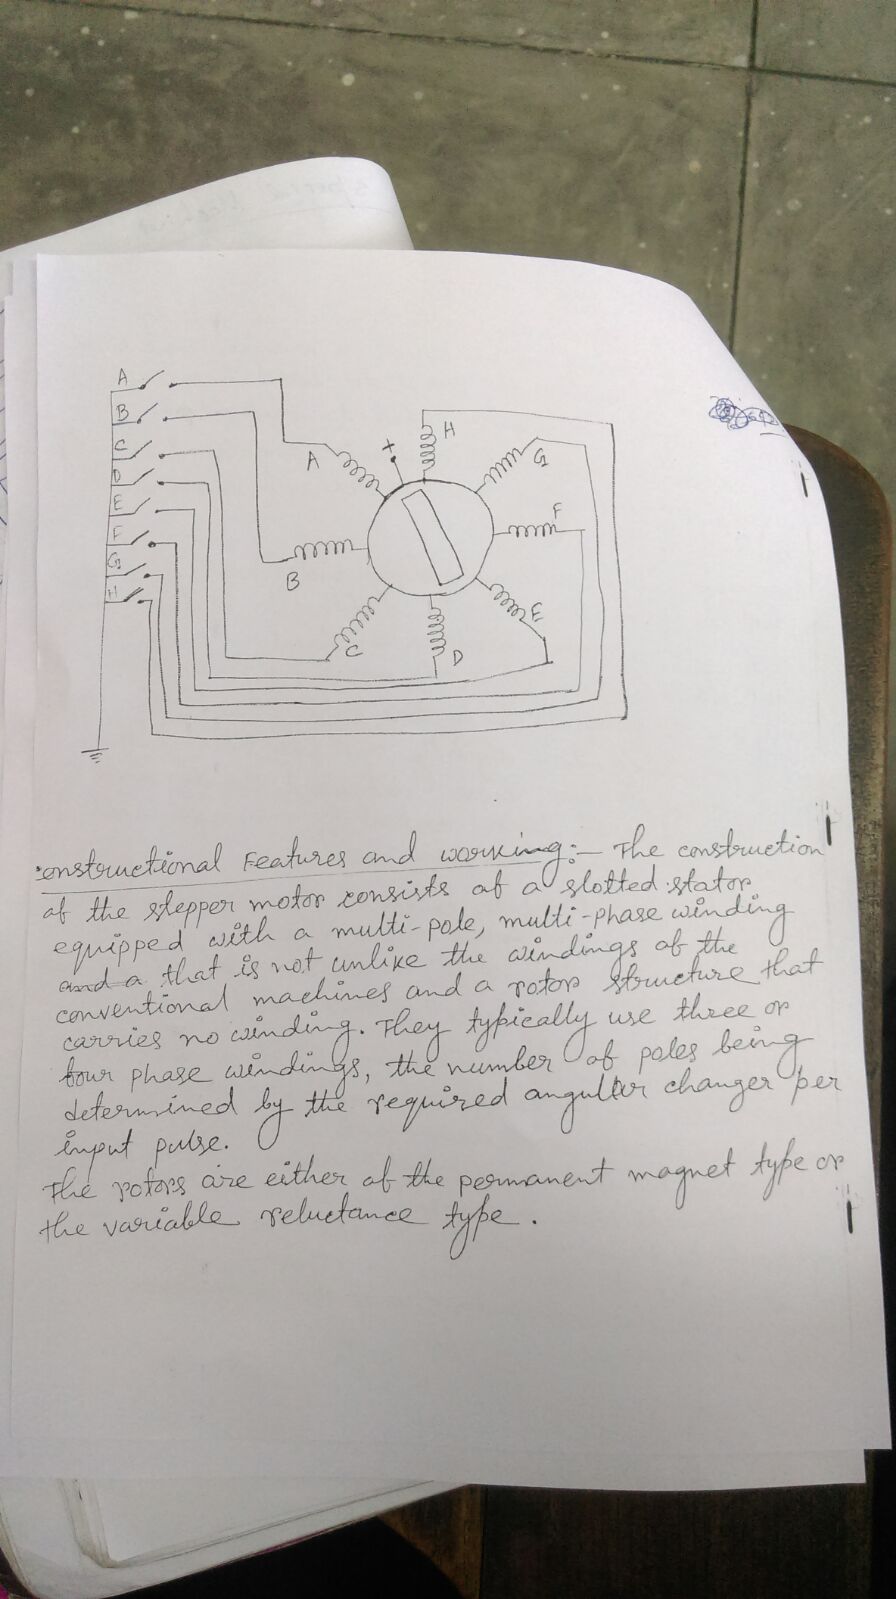 A
B
C
D
E
F
G
H
A
+
H
G
F
B
E
C
D
onstructional Features and working:- The construction
of the stepper motor consists of a slotted stator
equipped with a multi-pole, multi-phase winding
and a that is not unlike the windings of the
conventional machines and a rotor structure that
carries no winding. They typically use three or
four phase windings, the number of poles being
determined by the required angular changer per
input pulse.
The rotors are either of the permanent magnet type or
the variable reluctance type.